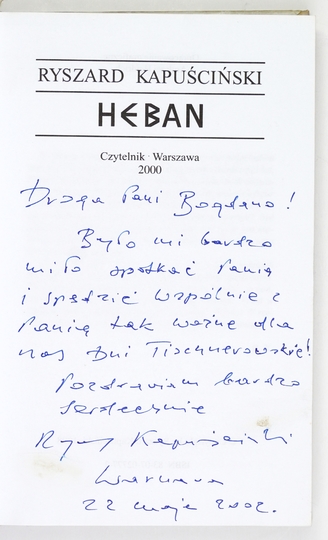 RYSZARD KAPUŚCIŃSKI
HEBAN
Czytelnik Warszawa
2000
Droga Pani Bogdano!
Było mi bardzo
miło spotkać Panią
i spędzić wspólnie z
Panią tak ważne dla
nas Dni Tischnerowskie!
Pozdrawiam bardzo
serdecznie
Ryszard Kapuściński
Warszawa
22 maja 2002.